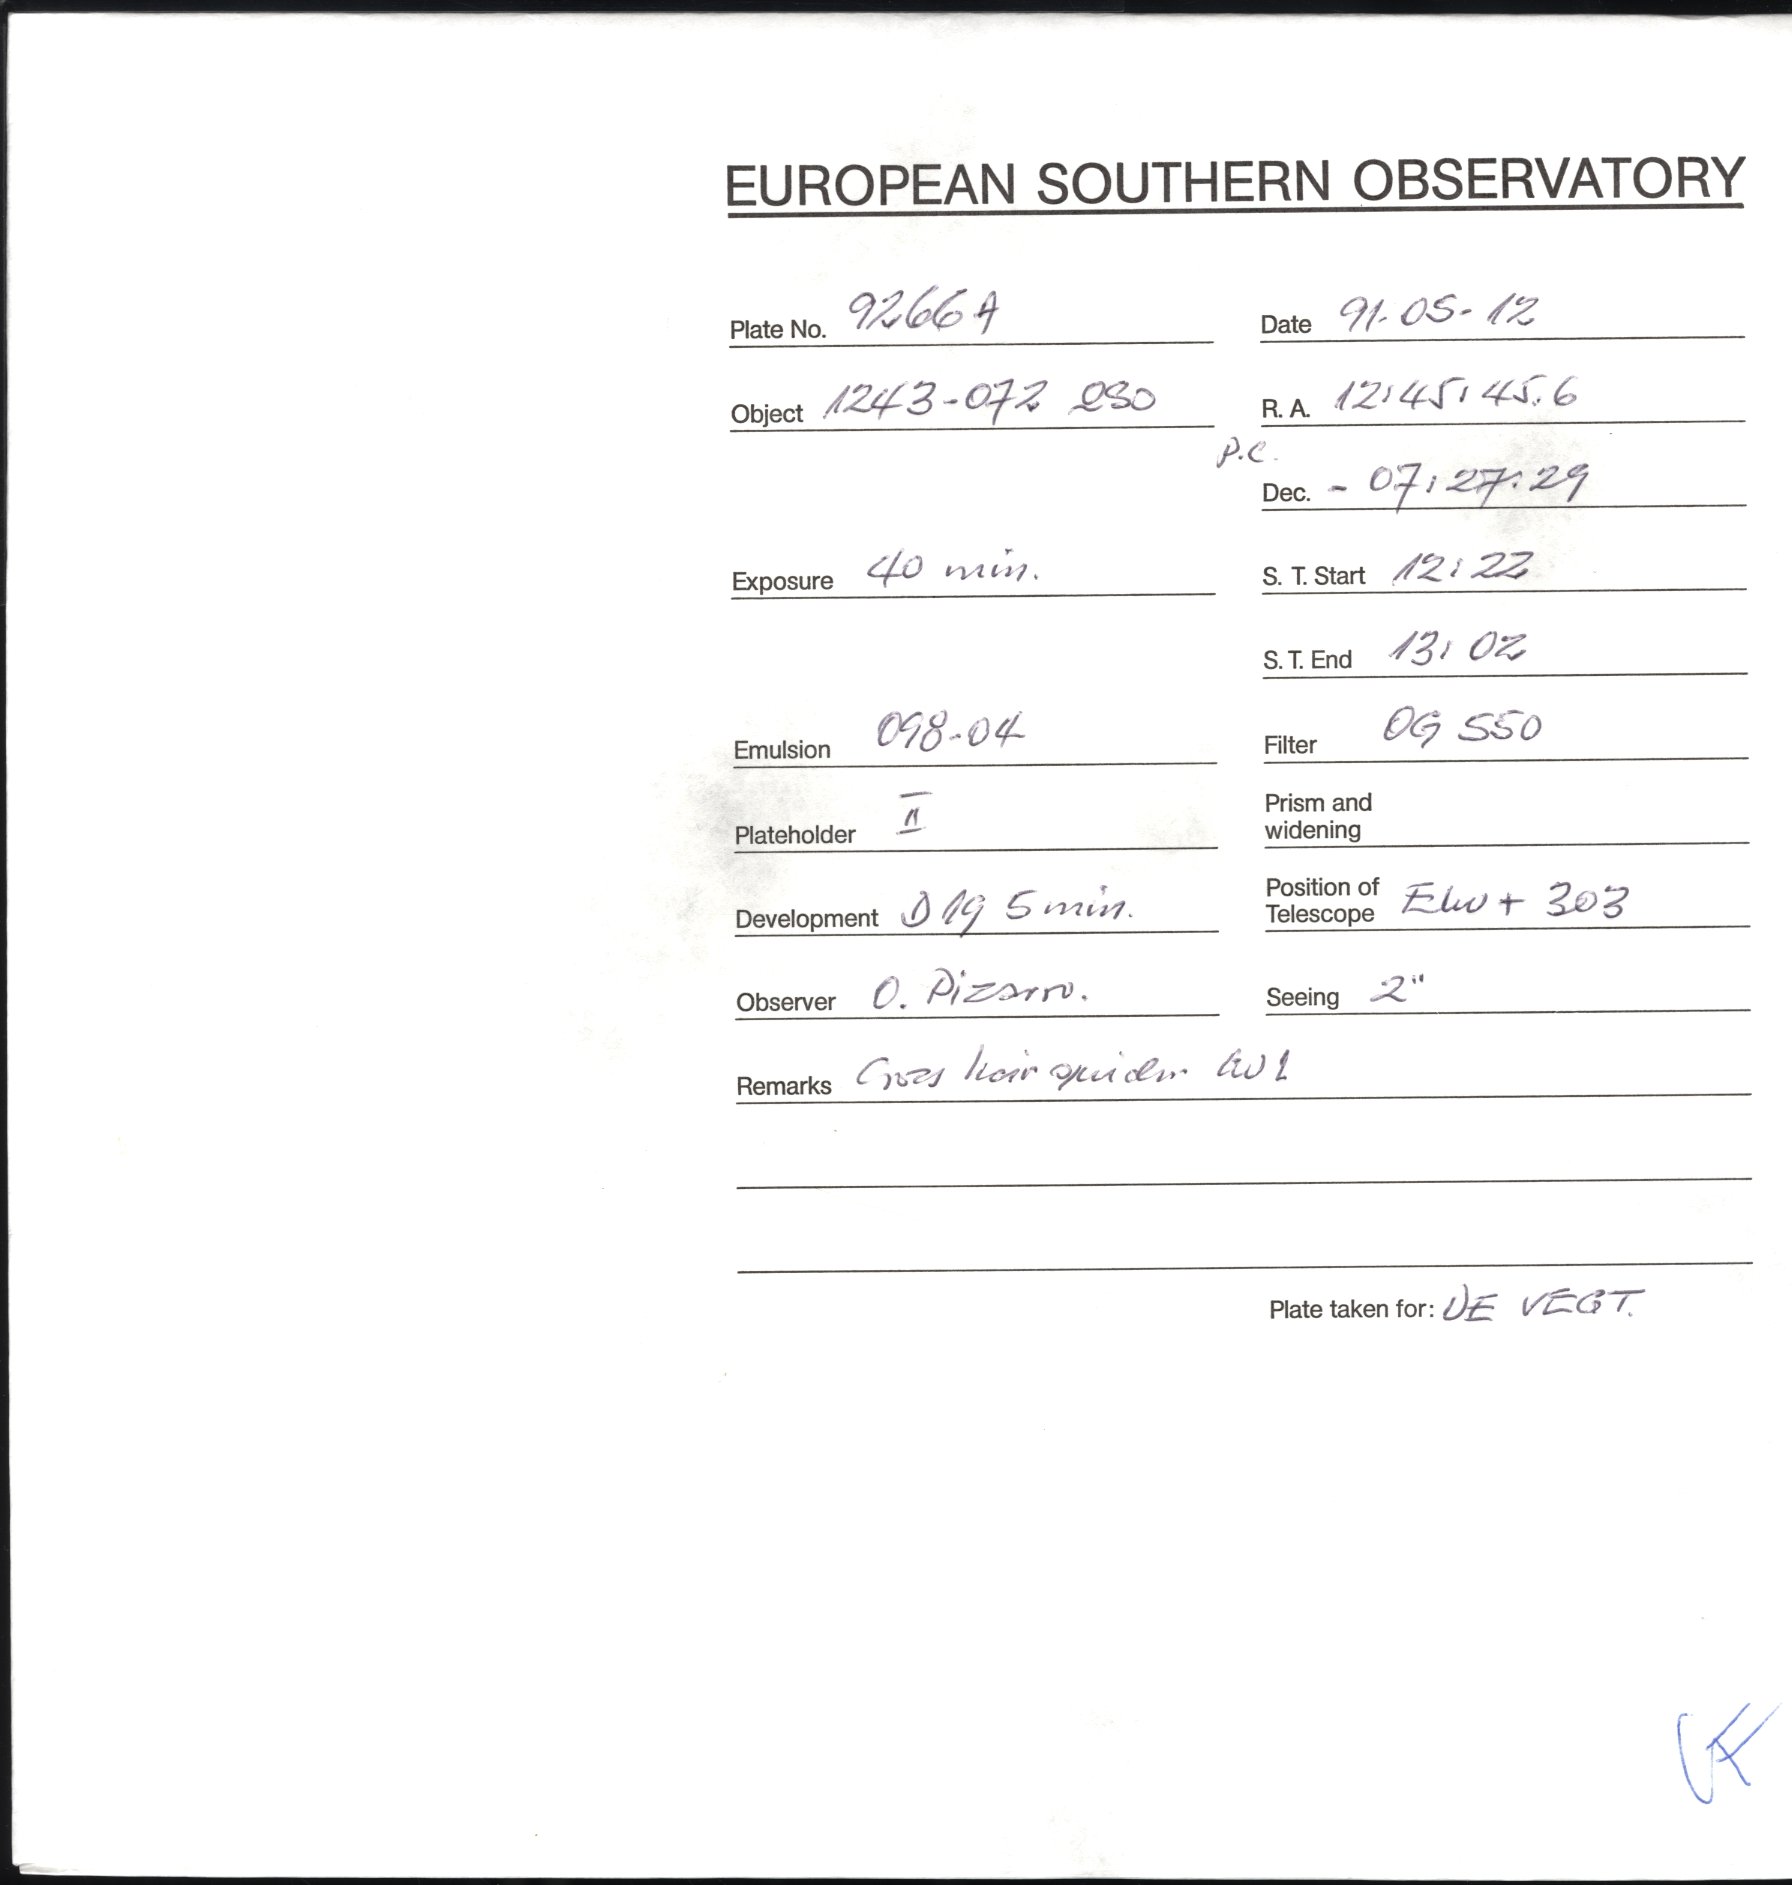 EUROPEAN SOUTHERN OBSERVATORY
Plate No. 9266A Date 91-05-12
Object 1243-072 QSO R. A. 12:45:45.6
P.C.
Dec. - 07:27:29
Exposure 40 min. S. T. Start 12:22
S. T. End 13:02
Emulsion 098-04 Filter OG 550
Plateholder II Prism and
widening
Development D19 5 min. Position of
Telescope + 303
Observer O. Pizarro. Seeing 2"
Remarks Cross hair
Plate taken for: DE VEGT.